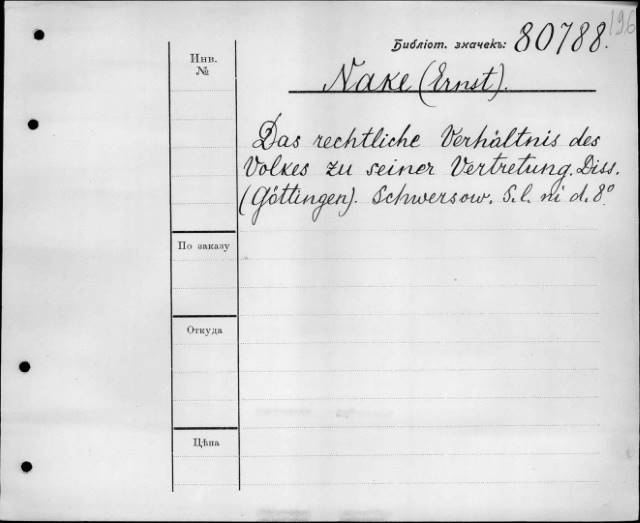 196
Библіот. значекъ: 80788.
Инв.
№
Nake (Ernst).
Das rechtliche Verhältnis des
Volkes zu seiner Vertretung. Diss.
(Göttingen). Schwersow. S. l. ni d. 8°
По заказу
Откуда
Цѣна